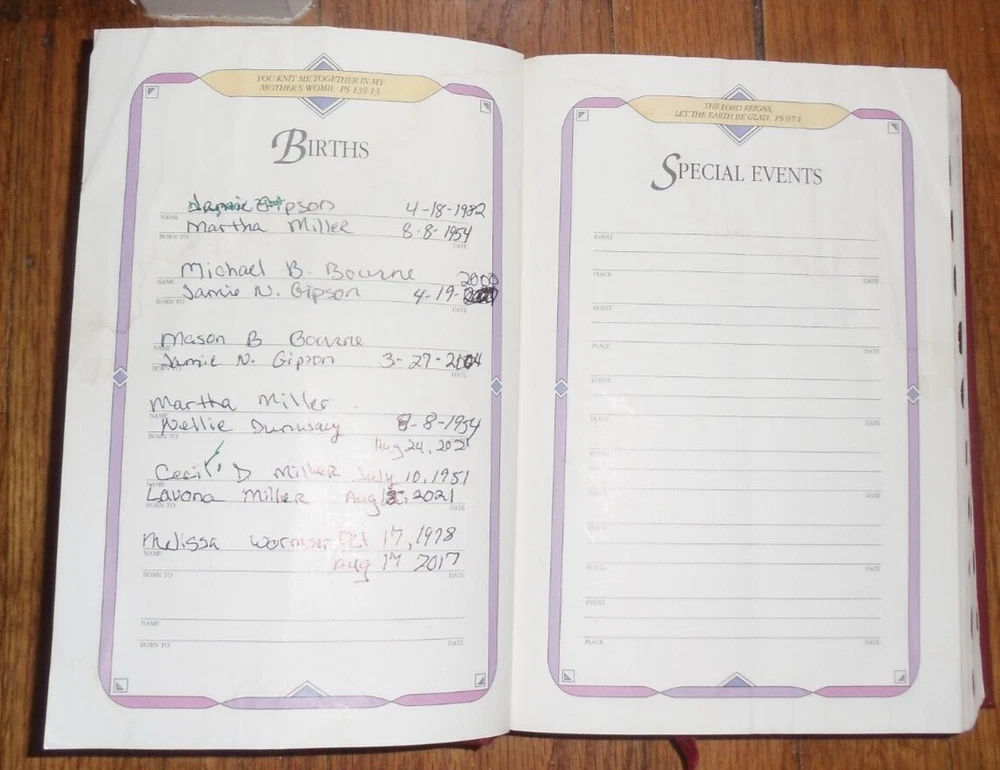 YOU KNIT ME TOGETHER IN MY
MOTHER'S WOMB. PS 139:13
BIRTHS
Jamie Gipson 4-18-1982
NAME
Martha Miller 8-8-1954
BORN TO DATE
Michael B. Bourne 2000
NAME
Jamie N. Gipson 4-19-
BORN TO DATE
Mason B Bourne
NAME
Jamie N. Gipson 3-27-2004
BORN TO DATE
Martha Miller
NAME
Nellie 8-8-1954
BORN TO DATE
Aug 24, 2021
Cecil D Miller July 10, 1951
NAME
Lavona Miller Aug 2021
BORN TO DATE
Melissa 17, 1978
NAME
Aug 17 2017
BORN TO DATE
NAME
BORN TO DATE
THE LORD REIGNS,
LET THE EARTH BE GLAD. PS 97:1
SPECIAL EVENTS
EVENT
PLACE DATE
EVENT
PLACE DATE
EVENT
PLACE DATE
EVENT
PLACE DATE
EVENT
PLACE DATE
EVENT
PLACE DATE